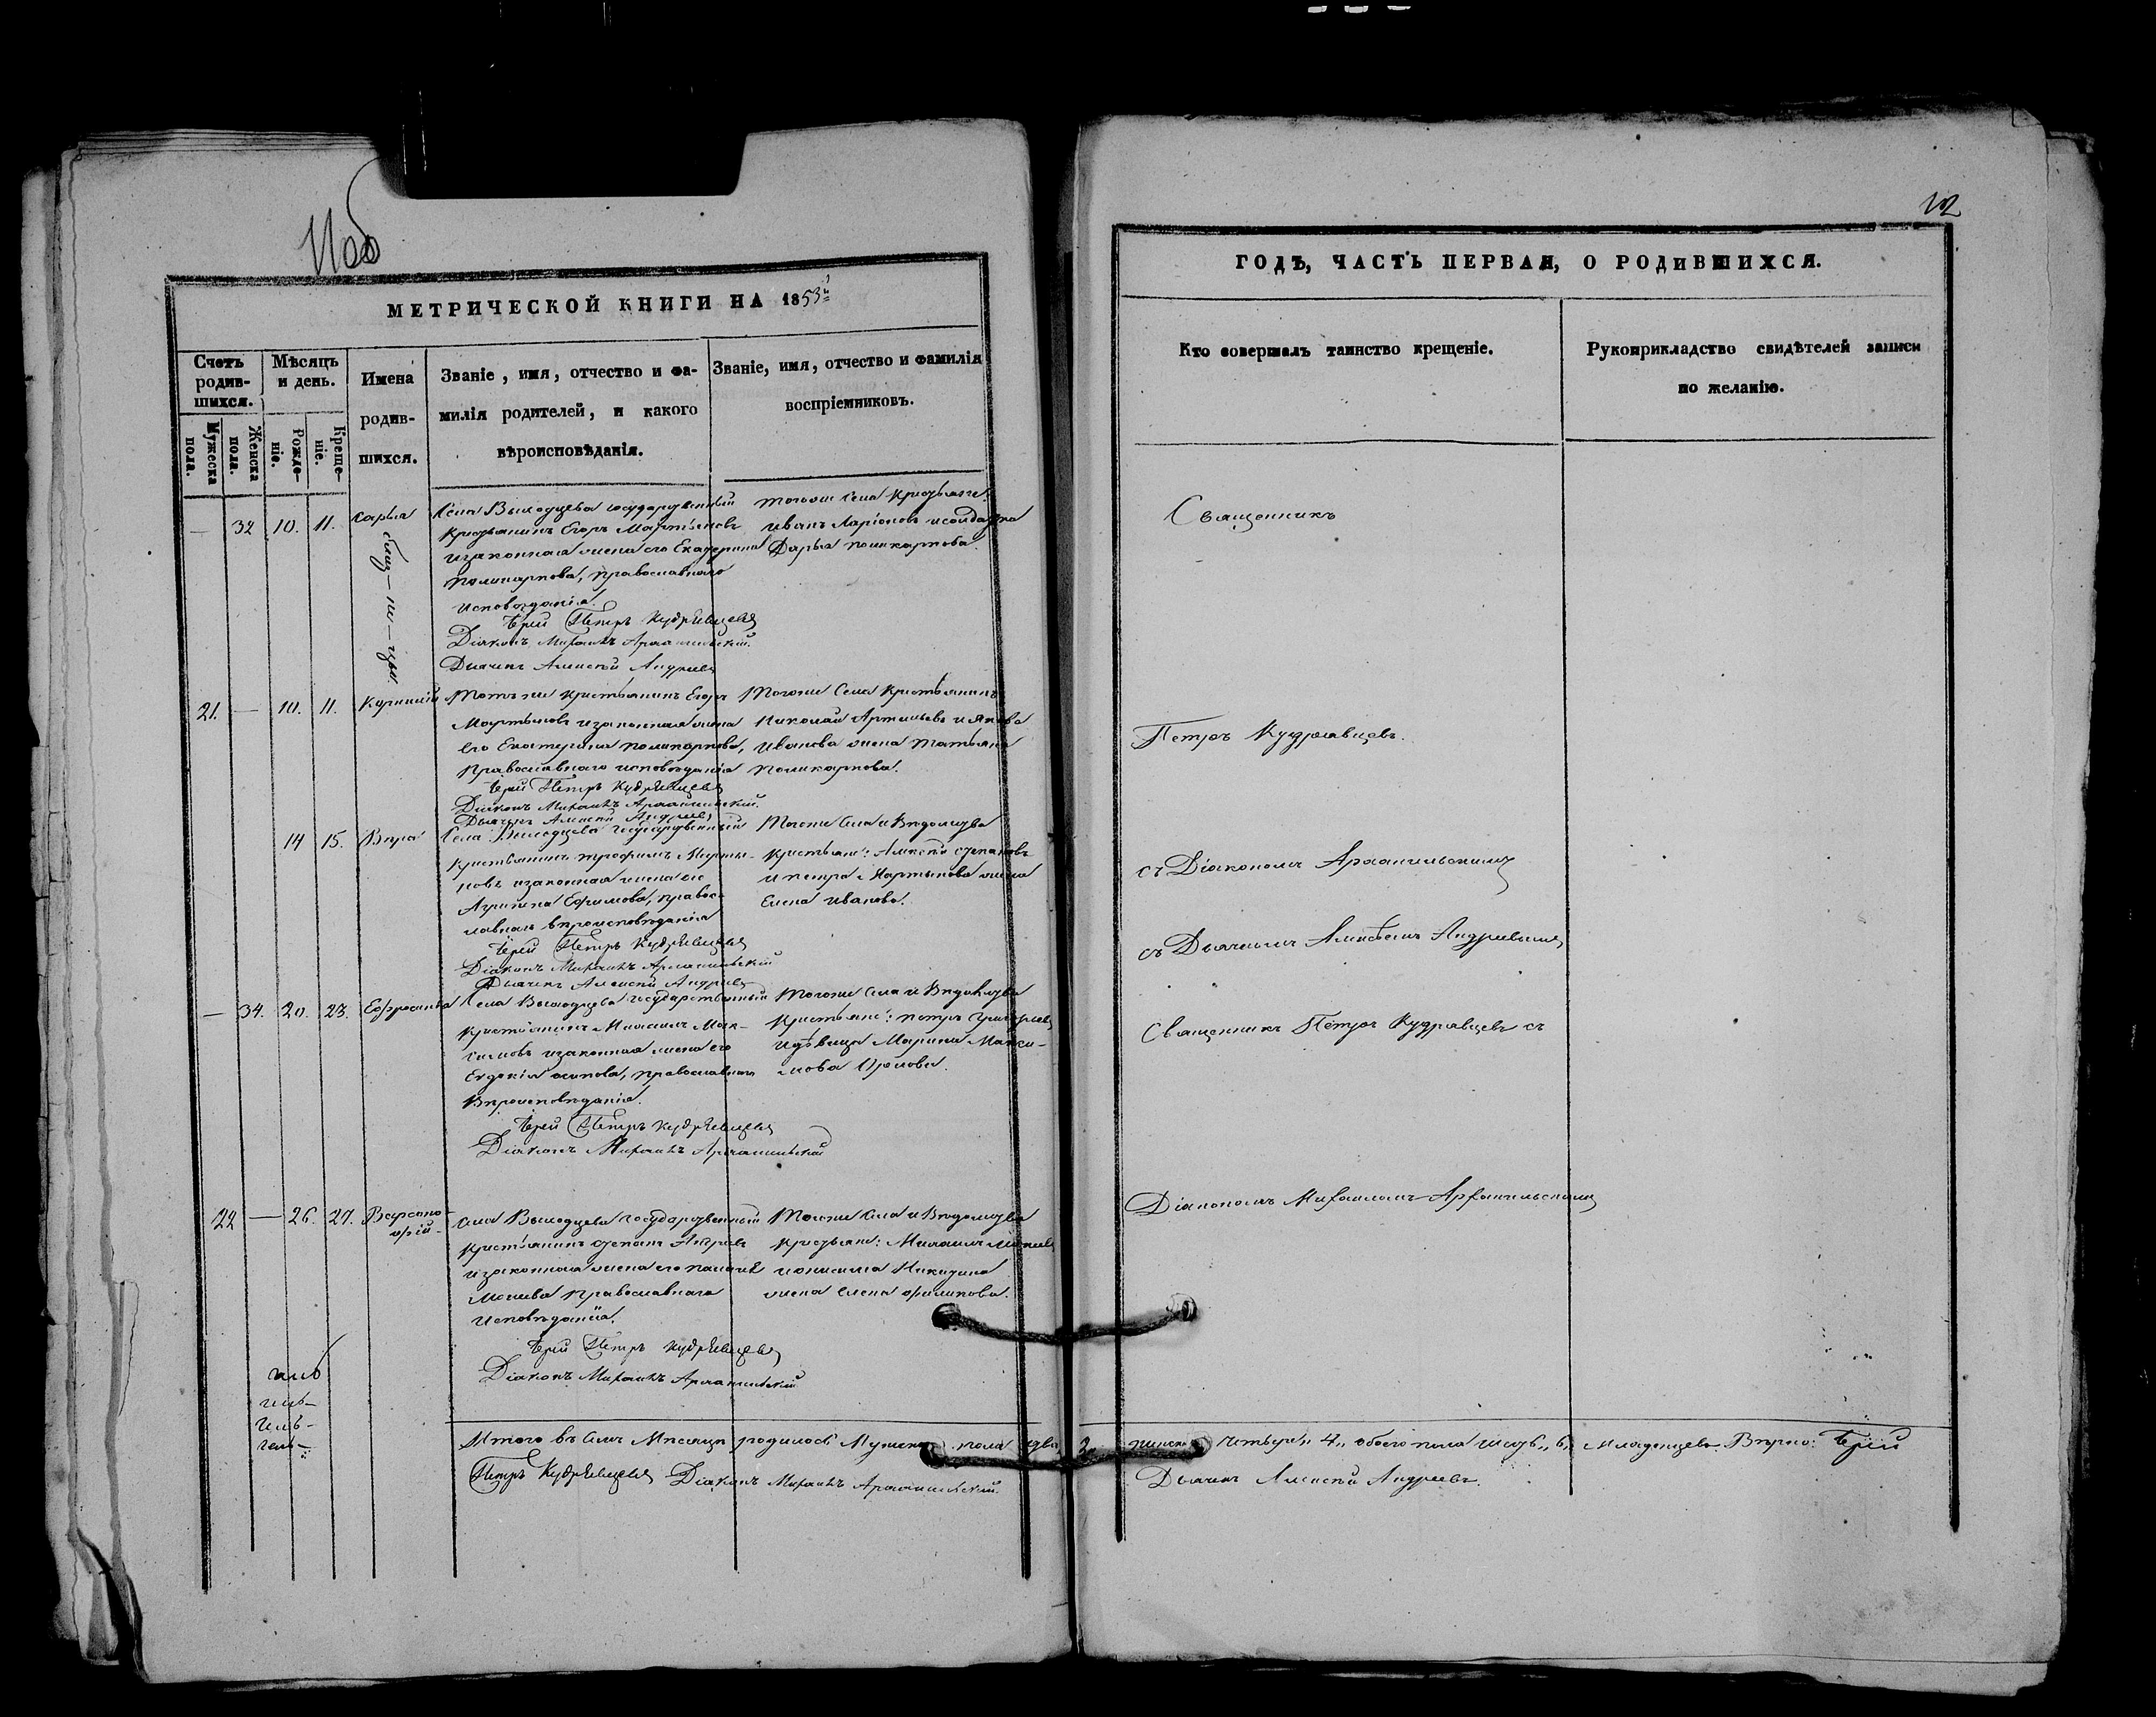 12
МЕТРИЧЕСКОЙ КНИГИ НА 1853й
ГОДЪ, ЧАСТЬ ПЕРВАЯ, О РОДИВШИХСЯ.
Счетъ родив-шихся.
Мужеска пола.
Женска пола.
Мѣсяцъ и день.
Рожде-ніе.
Креще-ніе.
Имена
родив-
шихся.
Званіе, имя, отчество и фа-
милія родителей, и какого
вѣроисповѣданія.
Званіе, имя, отчество и фамилія
воспріемниковъ.
Кто совершалъ таинство крещеніе.
Рукоприкладство свидѣтелей записи
по желанію.
— 32 10. 11.
близ-не-цы
Села государственный
крестьянинъ Егоръ Мартыновъ
и законная жена его Екатерина
Поликарпова, православнаго
исповѣданія.
Іерей Петръ Кудрявцевъ
Діаконъ Михаилъ Архангельскій.
Дьячекъ Алексѣй Андреевъ
тогоже села крестьяне
Иванъ Ларіоновъ и солдатка
Дарья Поликарпова.
Священникъ
21. — 10. 11. Корнилій
Тотъ же крестьянинъ Егоръ
Мартыновъ и законная жена
его Екатерина Поликарпова,
православнаго исповѣданія
Іерей Петръ Кудрявцевъ
Діаконъ Михаилъ Архангельскій.
Дьячекъ Алексѣй Андреевъ
Тогоже села крестьянинъ
Николай Артемьевъ и Якова
Иванова жена Татьяна
Поликарпова.
Петръ Кудрявцевъ.
14 15. Вѣра
Села государственный
крестьянинъ Трофимъ Марты-
новъ и законная жена его
Ефимова, правос-
лавнаго вѣроисповѣданія
Іерей Петръ Кудрявцевъ
Діаконъ Михаилъ Архангельскій
Дьячекъ Алексѣй Андреевъ
Тогоже села и вѣдомства
крестьяне: Алексѣй Степановъ
и Петра Мартынова жена
Елена Иванова.
съ Діакономъ Архангельскимъ
съ Дьячкомъ Алексѣемъ Андреевымъ
— 34. 20. 23.
Села государственный
крестьянинъ Мак-
симовъ и законная жена его
Евдокія Осипова, православнаго
вѣроисповѣданія.
Іерей Петръ Кудрявцевъ
Діаконъ Михаилъ Архангельскій
Тогоже села и вѣдомства
крестьяне: Петръ Григорьевъ
и дѣвица Марина Макси-
мова Орлова.
Священникъ Петръ Кудрявцевъ съ
22 — 26. 27. Варсоно-
фій
Села государственный
крестьянинъ Степанъ
и законная жена его
православнаго
исповѣданія.
Іерей Петръ Кудрявцевъ
Діаконъ Михаилъ Архангельскій
Тогоже села и вѣдомства
крестьяне: Михаилъ
и Никитина
жена Елена Филипова.
Діакономъ Михаиломъ Архангельскимъ
Итого въ семъ мѣсяцѣ родилось мужеска пола два, 2 женска четыре 4, обоего пола шесть 6, младенцевъ. Вѣрно: Іерей
Петръ Кудрявцевъ Діаконъ Михаилъ Архангельскій.
Дьячекъ Алексѣй Андреевъ.